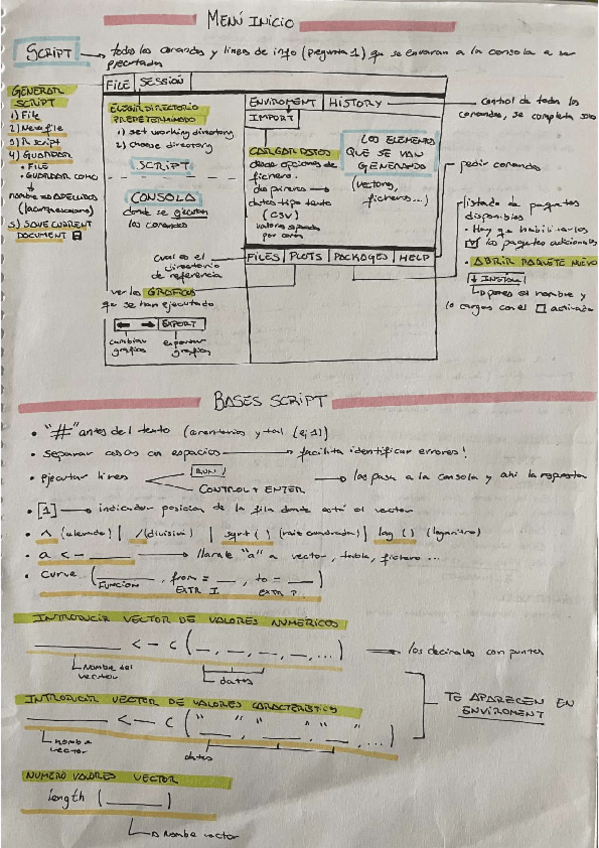 MENÚ INICIO
SCRIPT → todos los comandos y lineas de info (pregunta 1) que se enviaran a la consola a ser
ejecutados
GENERAR
SCRIPT
1) File
2) New file
3) R script
4) GUARDAR
• FILE
• GUARDAR COMO
↓
nombre no APELLIDOS
5) SAVE CURRENT
DOCUMENT
FILE SESSION
ELEGIR DIRECTORIO
PREDETERMINADO
1) set working directory
2) choose directory
SCRIPT
CONSOLA
donde se ejecutan
los comandos
cual es el
directorio
de referencia
ver los GRÁFICOS
que se han ejecutado
← → EXPORT
cambiar
gráficos
exportar
gráficos
ENVIROMENT HISTORY
IMPORT
CARGAR DATOS
desde opciones de
fichero.
dos primeros →
datos tipo texto
(CSV)
valores separados
por coma
LOS ELEMENTOS
QUE SE VAN
GENERANDO
(vectores,
ficheros...)
FILES PLOTS PACKAGES HELP
control de todos los
comandos, se completa solo
pedir comandos
listado de paquetes
disponibles
• Hay que habilitarlos
los paquetes adicionales
• ABRIR PAQUETE NUEVO
↓ INSTALL
pones el nombre y
lo cargas con el □ activado
BASES SCRIPT
• "#" antes del texto (comentarios y tal (ej 1)
• separar cosas con espacios → facilita identificar errores!
• ejecutar lines
RUN
CONTROL + ENTER
→ las pasa a la consola y ahi la respuesta
• [1] → indicador posicion de la fila donde está el vector
• ^ (elevado) | /(division) | sqrt ( ) (raiz cuadrada) | log ( ) (logaritmo)
• a <- ____ → llamale "a" a vector, tabla, fichero ...
• curve (____, from = __, to = __)
FUNCION
EXTR I.
EXTR
INTRODUCIR VECTOR DE VALORES NUMERICOS
____ <- c (__, __, __, __, ...) → los decimales con puntos
Nombre del
vector
datos
INTRODUCIR VECTOR DE VALORES CARACTERISTICOS
____ <- c ("__", "__", "__", ...)
nombre
vector
datos
TE APARECEN EN
ENVIROMENT
NUMERO VALORES VECTOR
length (____)
→ Nombre vector